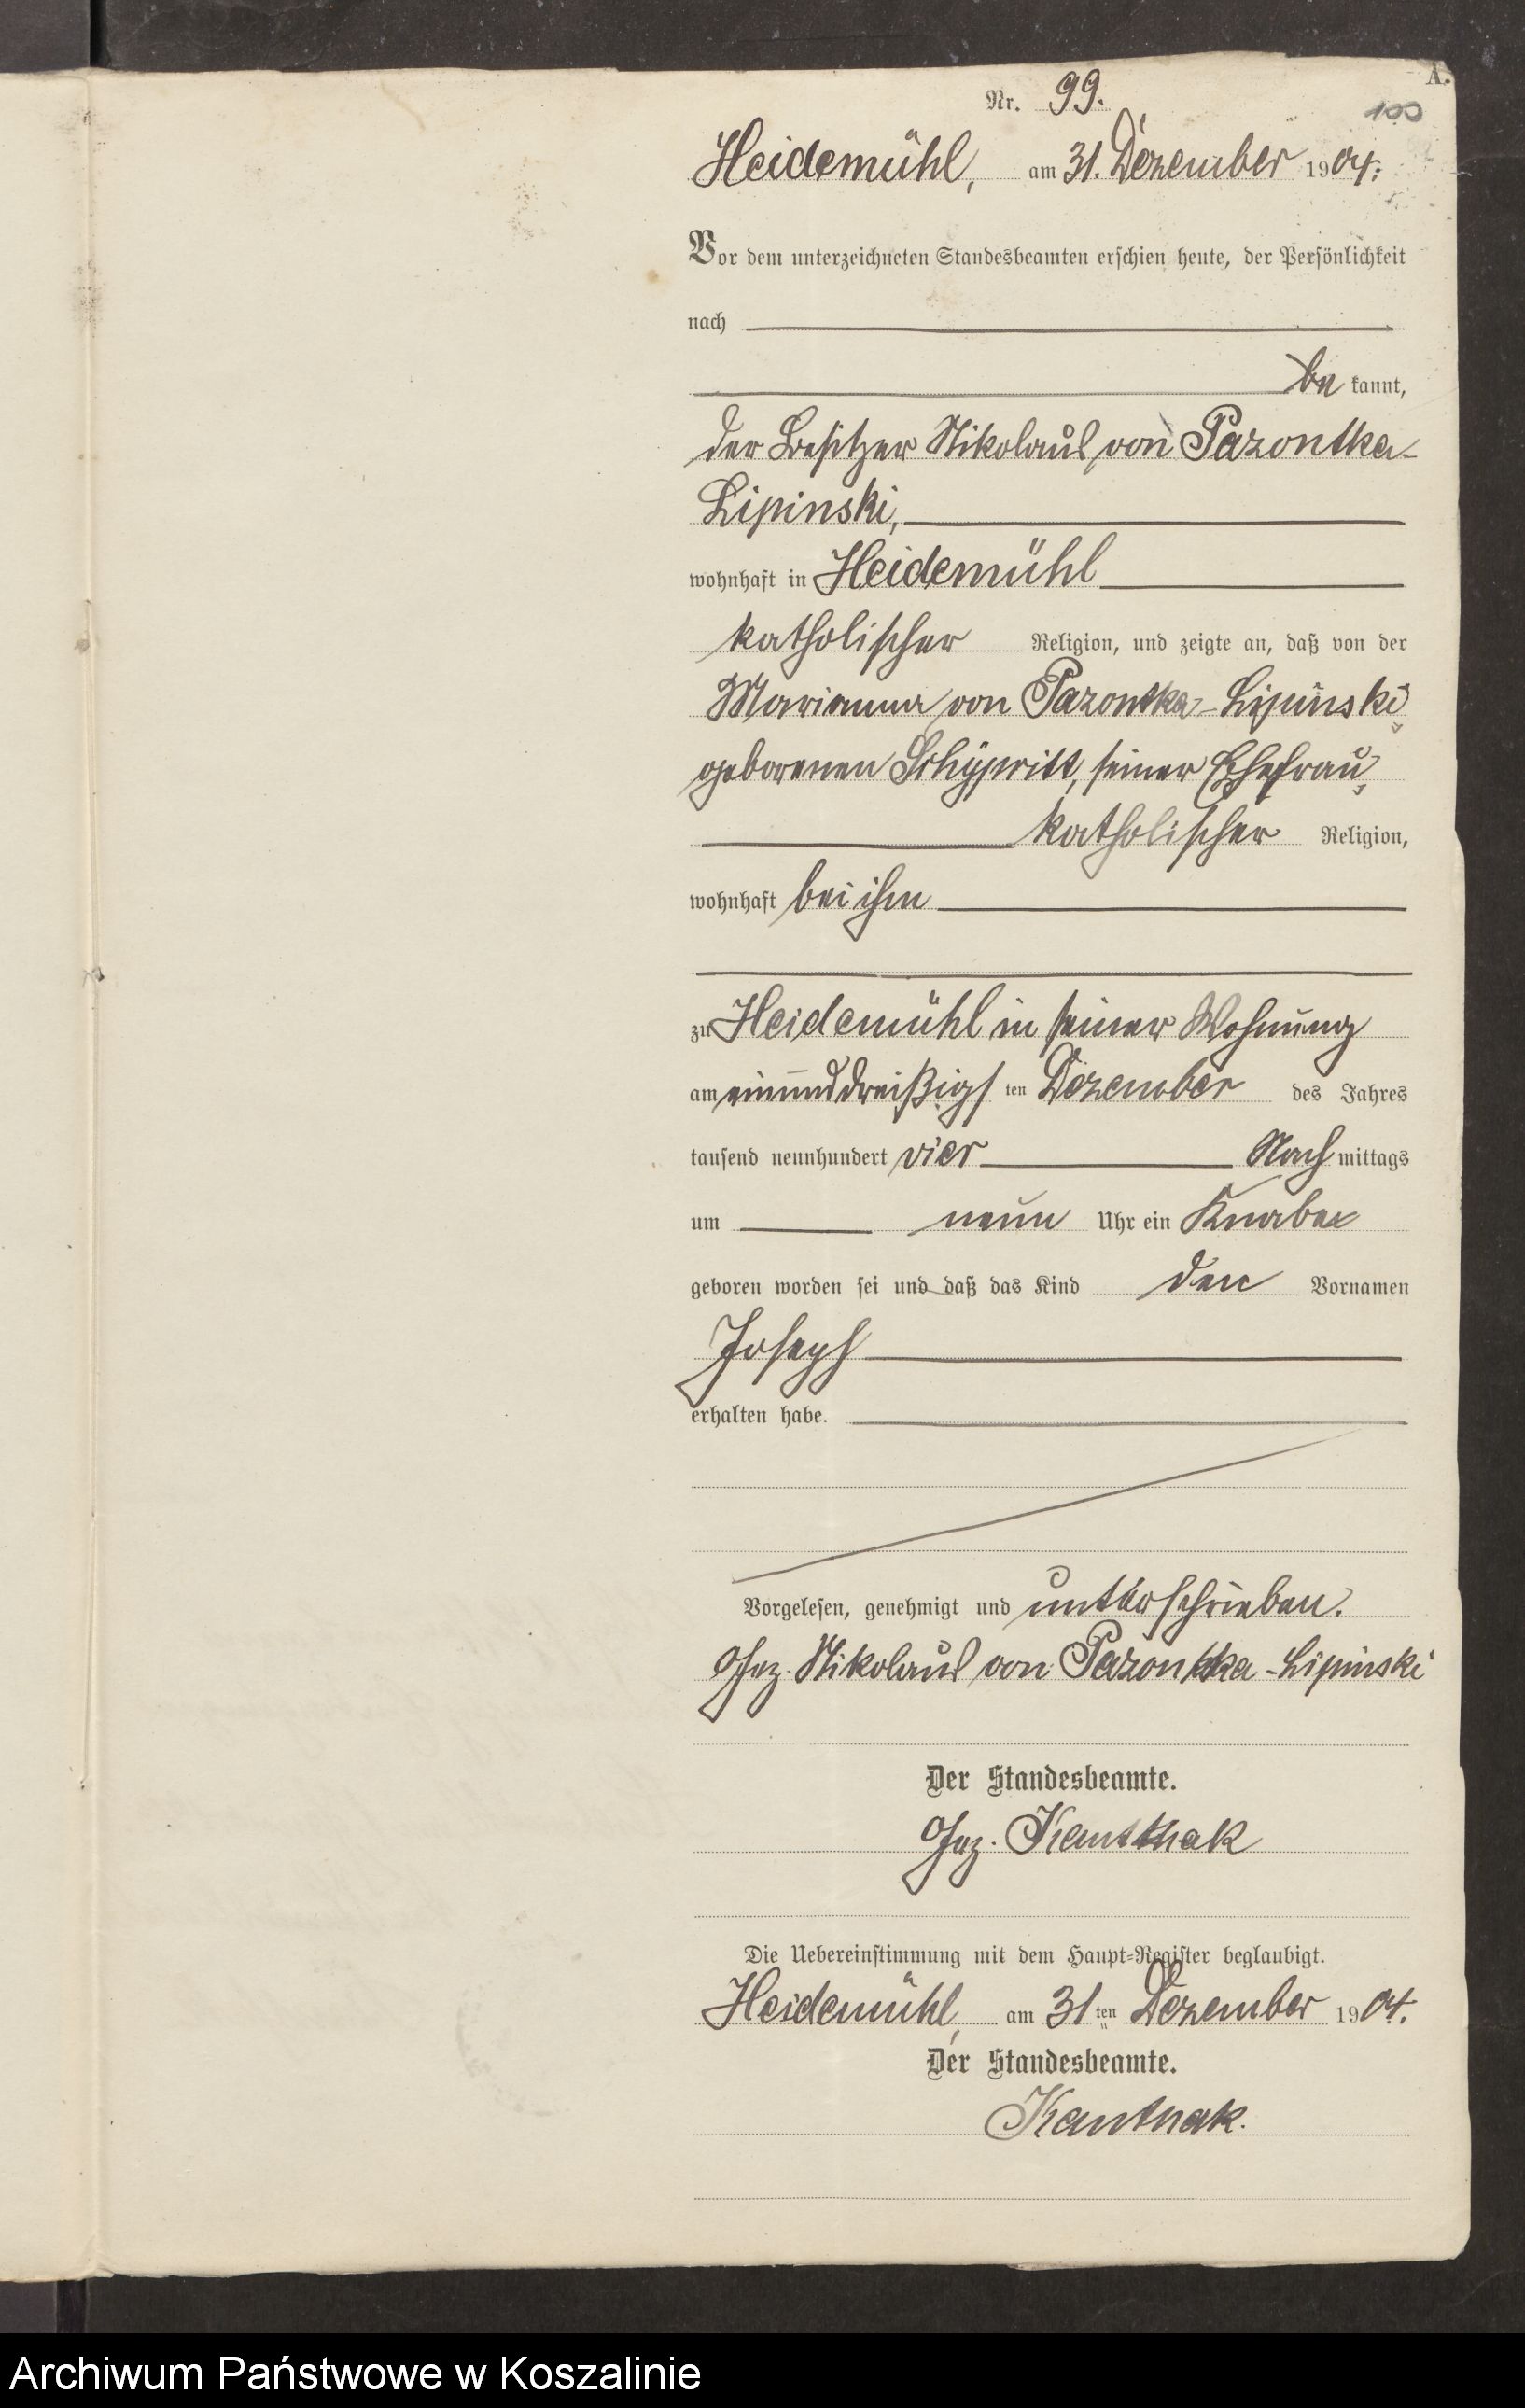 A.
Nr. 99.
100
Heidemühl, am 31. Dezember 1904.
Vor dem unterzeichneten Standesbeamten erschien heute, der Persönlichkeit
nach
be kannt,
der Besitzer Nikolaus von Pazontka-
Lipinski,
wohnhaft in Heidemühl
katholischer Religion, und zeigte an, daß von der
Marianna von Pazontka-Lipinski
geborenen Schypritt, seiner Ehefrau,
katholischer Religion,
wohnhaft bei ihm
zu Heidemühl in seiner Wohnung
am einunddreißigs ten Dezember des Jahres
tausend neunhundert vier Nach mittags
um neun Uhr ein Knabe
geboren worden sei und daß das Kind den Vornamen
Joseph
erhalten habe.
Vorgelesen, genehmigt und unterschrieben.
Gez. Nikolaus von Pazontka-Lipinski
Der Standesbeamte.
Gez. Kanthak
Die Uebereinstimmung mit dem Haupt-Register beglaubigt.
Heidemühl, am 31 ten Dezember 1904.
Der Standesbeamte.
Kanthak.
Archiwum Państwowe w Koszalinie